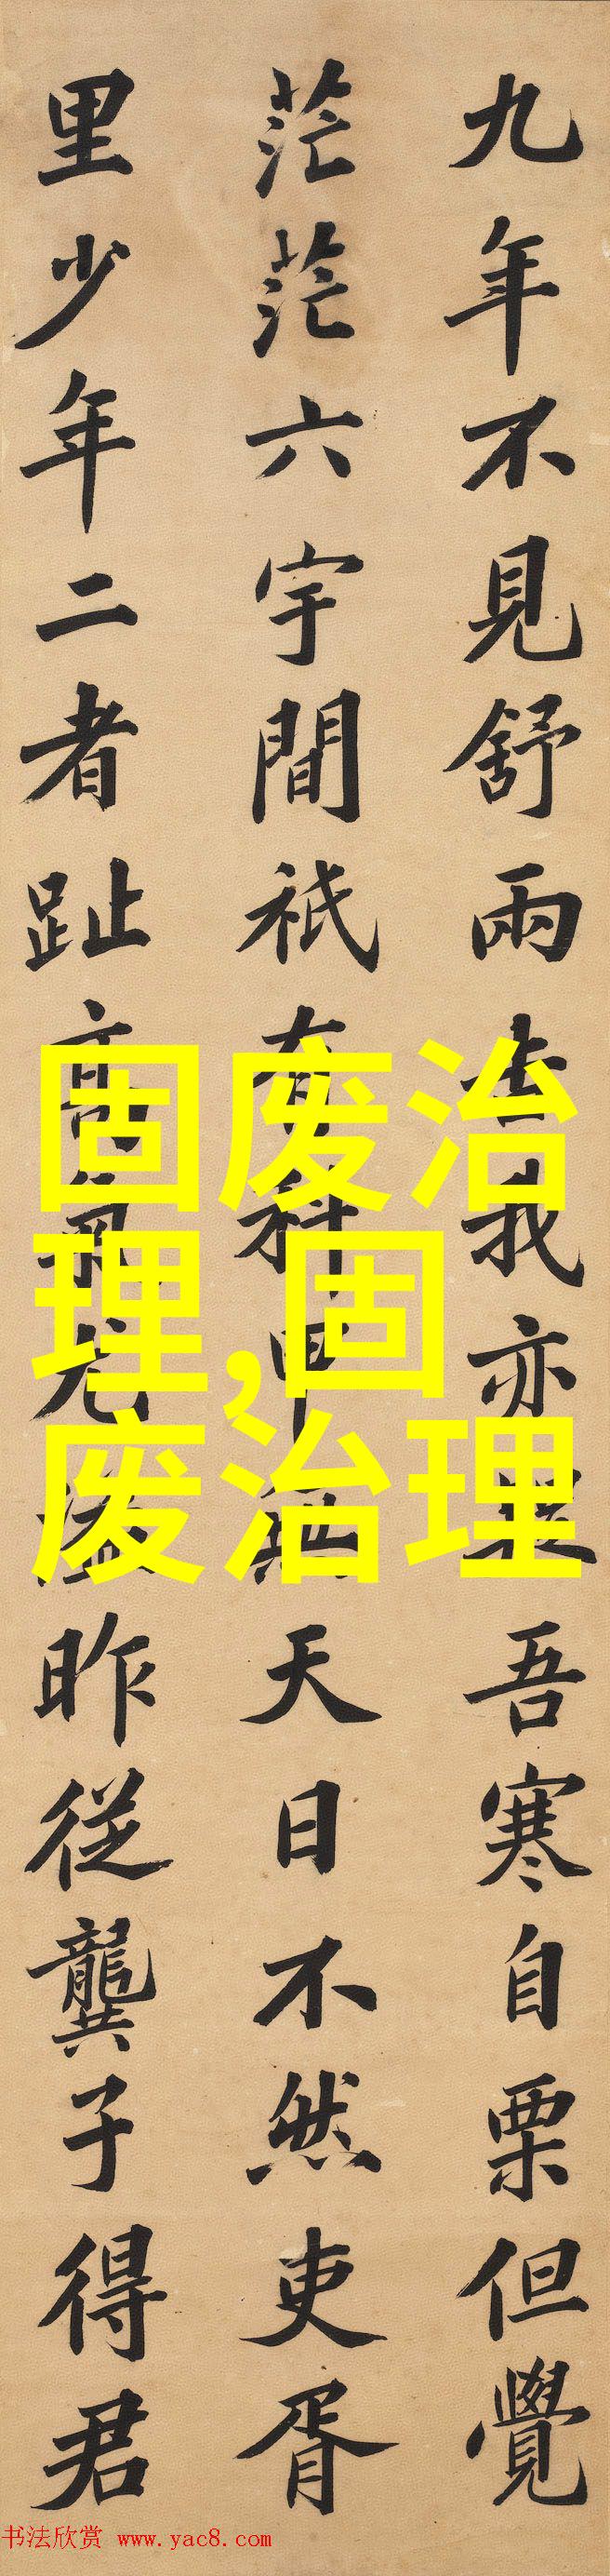 九年不見舒兩
我亦
吾寒自栗但覺
茫茫六宇間祇有科甲無天日不然吏胥
里少年二者趾高氣尤溢昨從龔子得君
固废治
理,固
废治理
书法欣赏 www.yac8.com